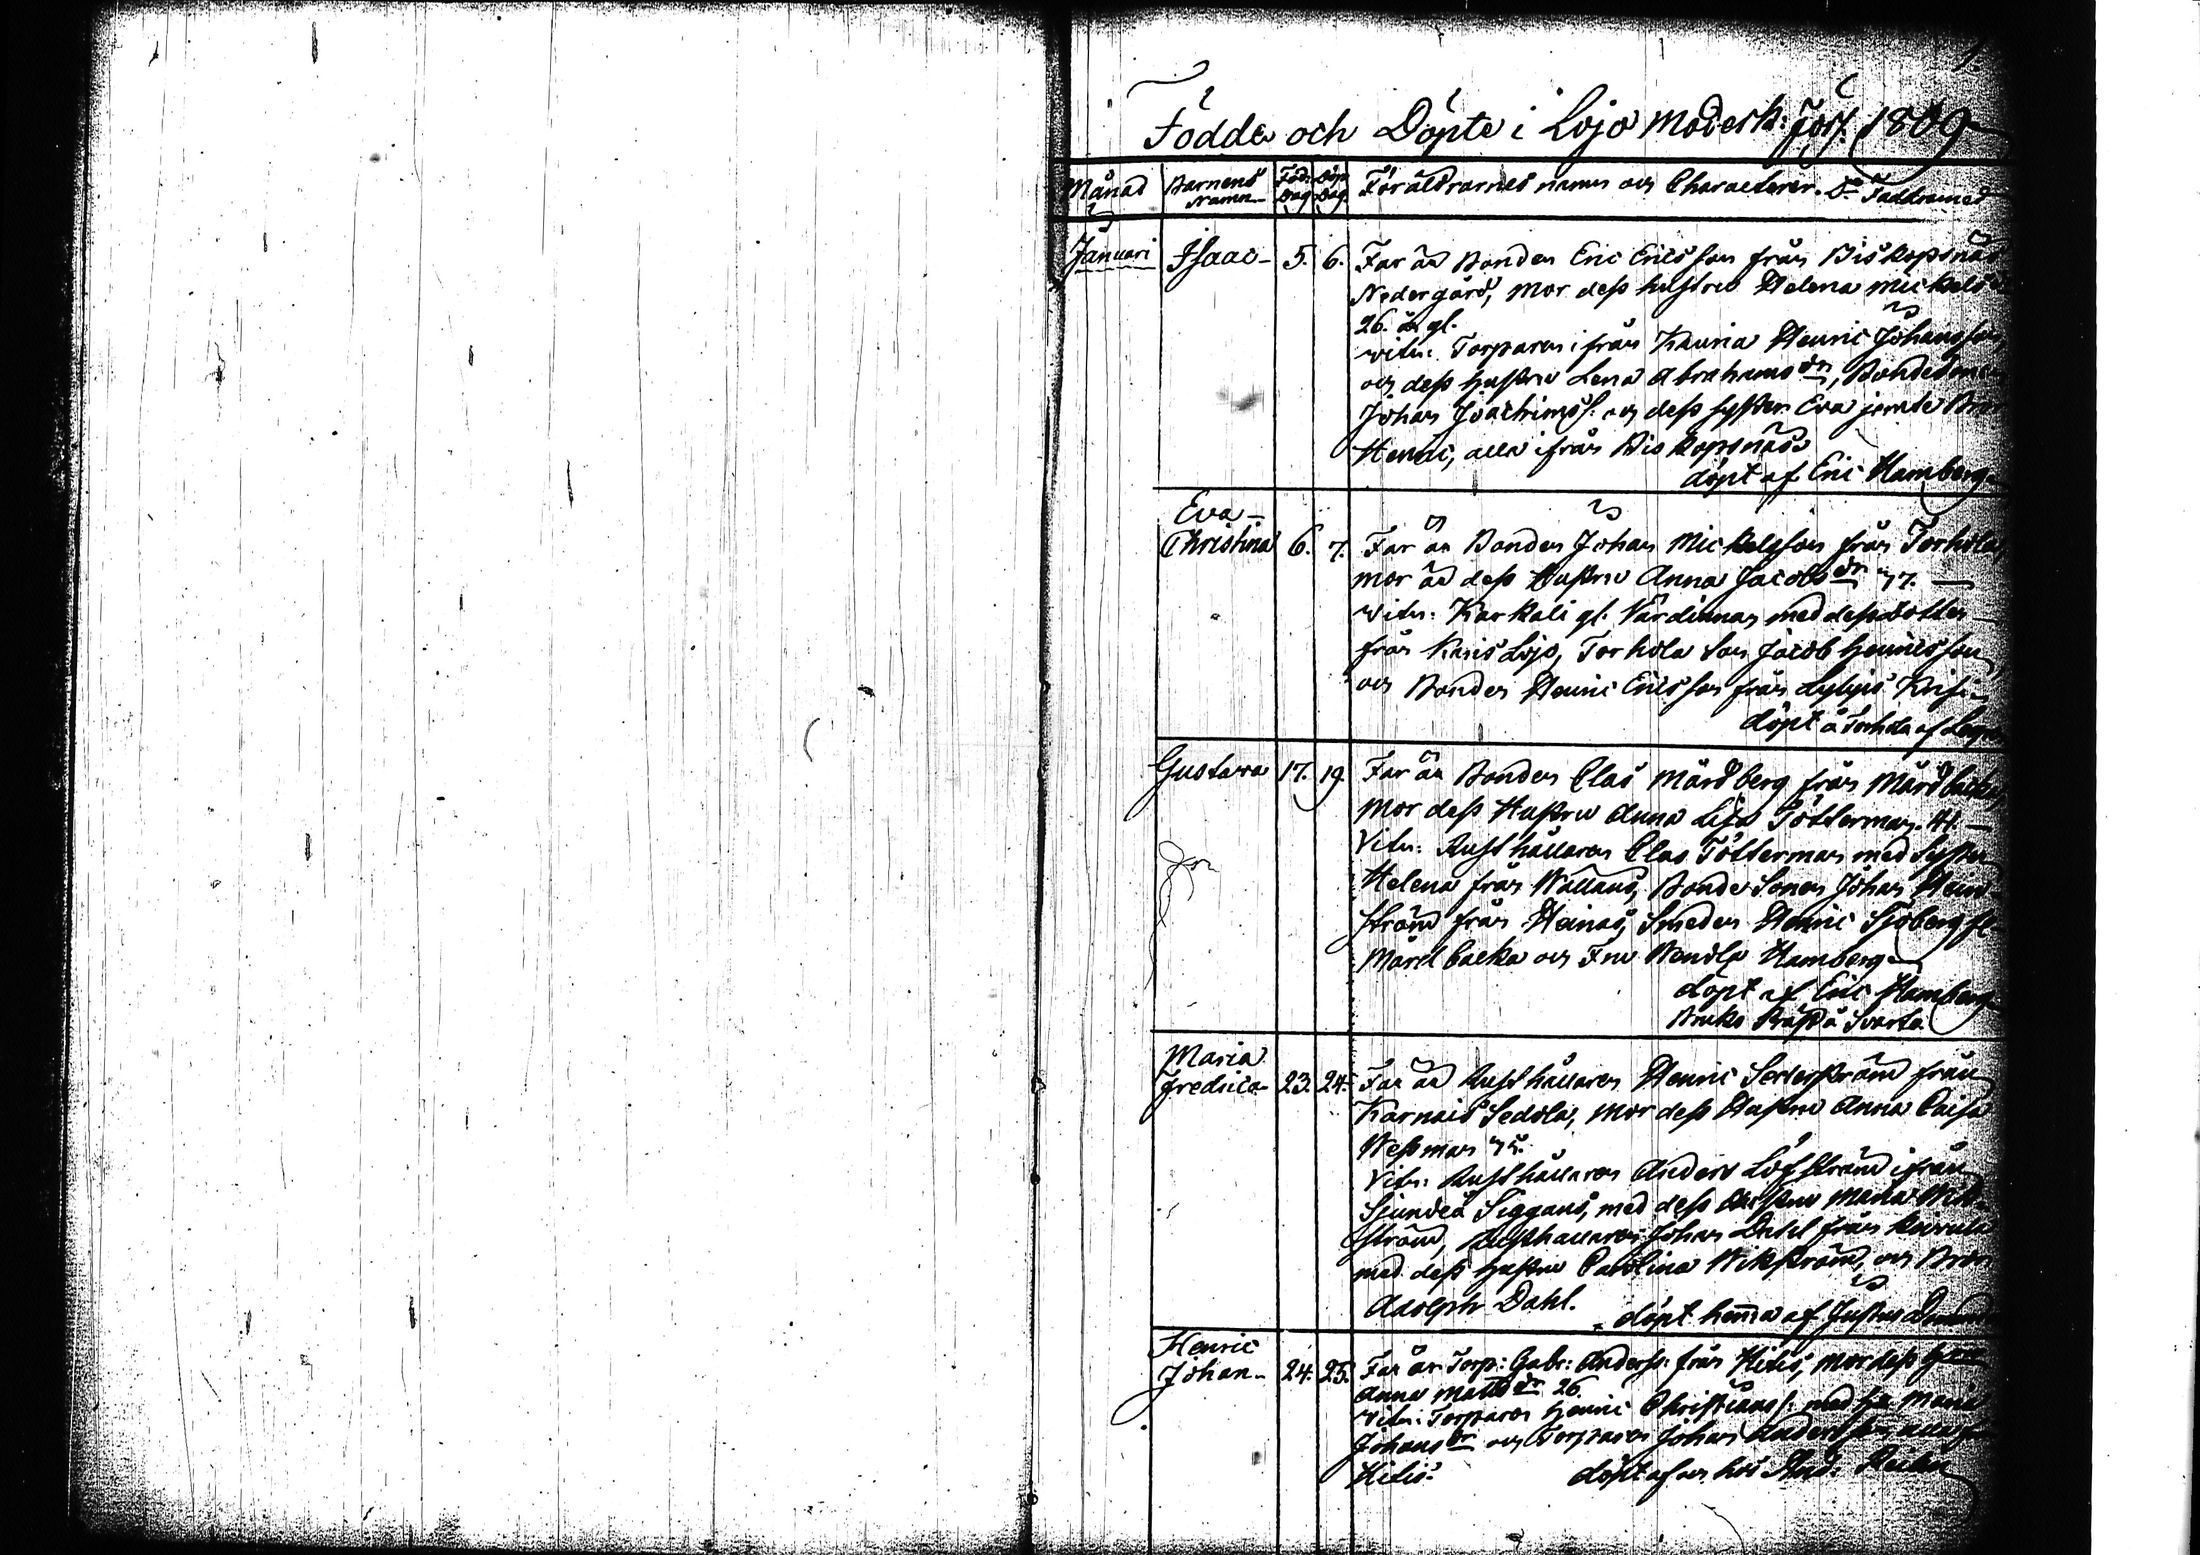 1.
Födde och Döpte i Lojo moderk: förs. 1809
Månad Barnens Namn Föd: Dag Döp Dag Föräldrarnes namn och Characterer. Do Faddrarnes
Januari Isaac 5. 6. Far är Bonden Eric Ericsson från Biskopsnäs
Nedergård, mor dess hustru Helena Mickelsd
26. år gl.
witn: Torparen ifrån Henric Johansson
och dess hustru Lena Abrahamsdr,
Johan Joachimss. och dess syster Eva jemte
Henric, alla ifrån Biskopsnäs
döpt af Eric Hamberg
Eva
Christina 6. 7. Far är Bonden Johan Mickelsson från Torhola
mor är dess Hustru Anna Jacobsdr 47.
witn: Karkali gl. Värdinnan med dess dotter
från Karis Lojo, Torhola Son Jacob Henricsson
och Bonden Henric Ericsson från Lylyis
döpt å Torhola af
Gustava 17. 19. Far är Bonden Clas Mårdberg från Mårdbacka,
mor dess Hustru Anna Lisa Tötterman. 41.
Vitn: Rusthållaren Clas Tötterman med Syster
Helena från Wållans, Bonde Sonen Johan
ström från Heinas, Smeden Henric Sjöberg fr
Mårdbacka och Fru Wendla Hamberg
döpt af Eric Hamberg
Bruks Präst å Svarta
Maria
Fredrica 23. 24. Far är Rusthållaren Henric från
Karnais Sedola, mor dess Hustru Anna Caisa
Wessman 45.
Vitn: Rusthållaren Anders Löfström ifrån
Sjundeå Siggans, med dess Hustru Maria Wik
ström, Rusthållaren Johan Dahl från
med dess Hustru Carolina Wikström, och Bror
Adolph Dahl.
döpt hemma af
Henric
Johan 24. 25. Far är Torp: Gabr: Anderss: från Hitis, mor dess
Anna Mattsdr 26.
Vitn: Torparen Henric Christians s. med Hu Maria
Johansdr och Torparen Johan Andersson alla fr
Hitis. döpt af